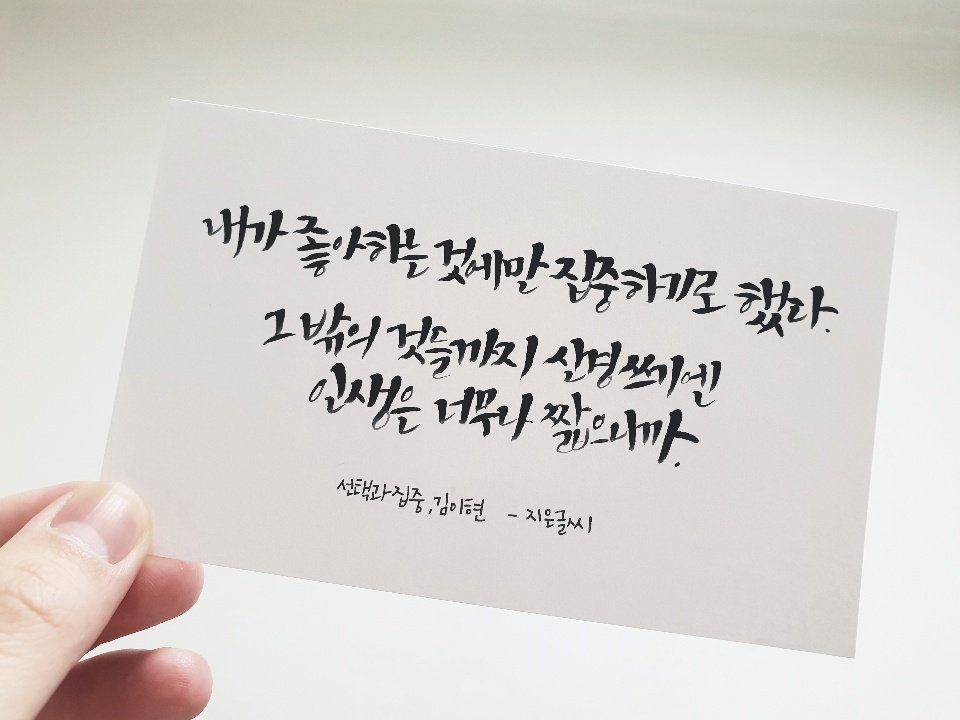 내가 좋아하는 것에만 집중하기로 했다.
그 밖의 것들까지 신경쓰기엔
인생은 너무나 짧으니까.
선택과 집중, 김이현 - 지은글씨